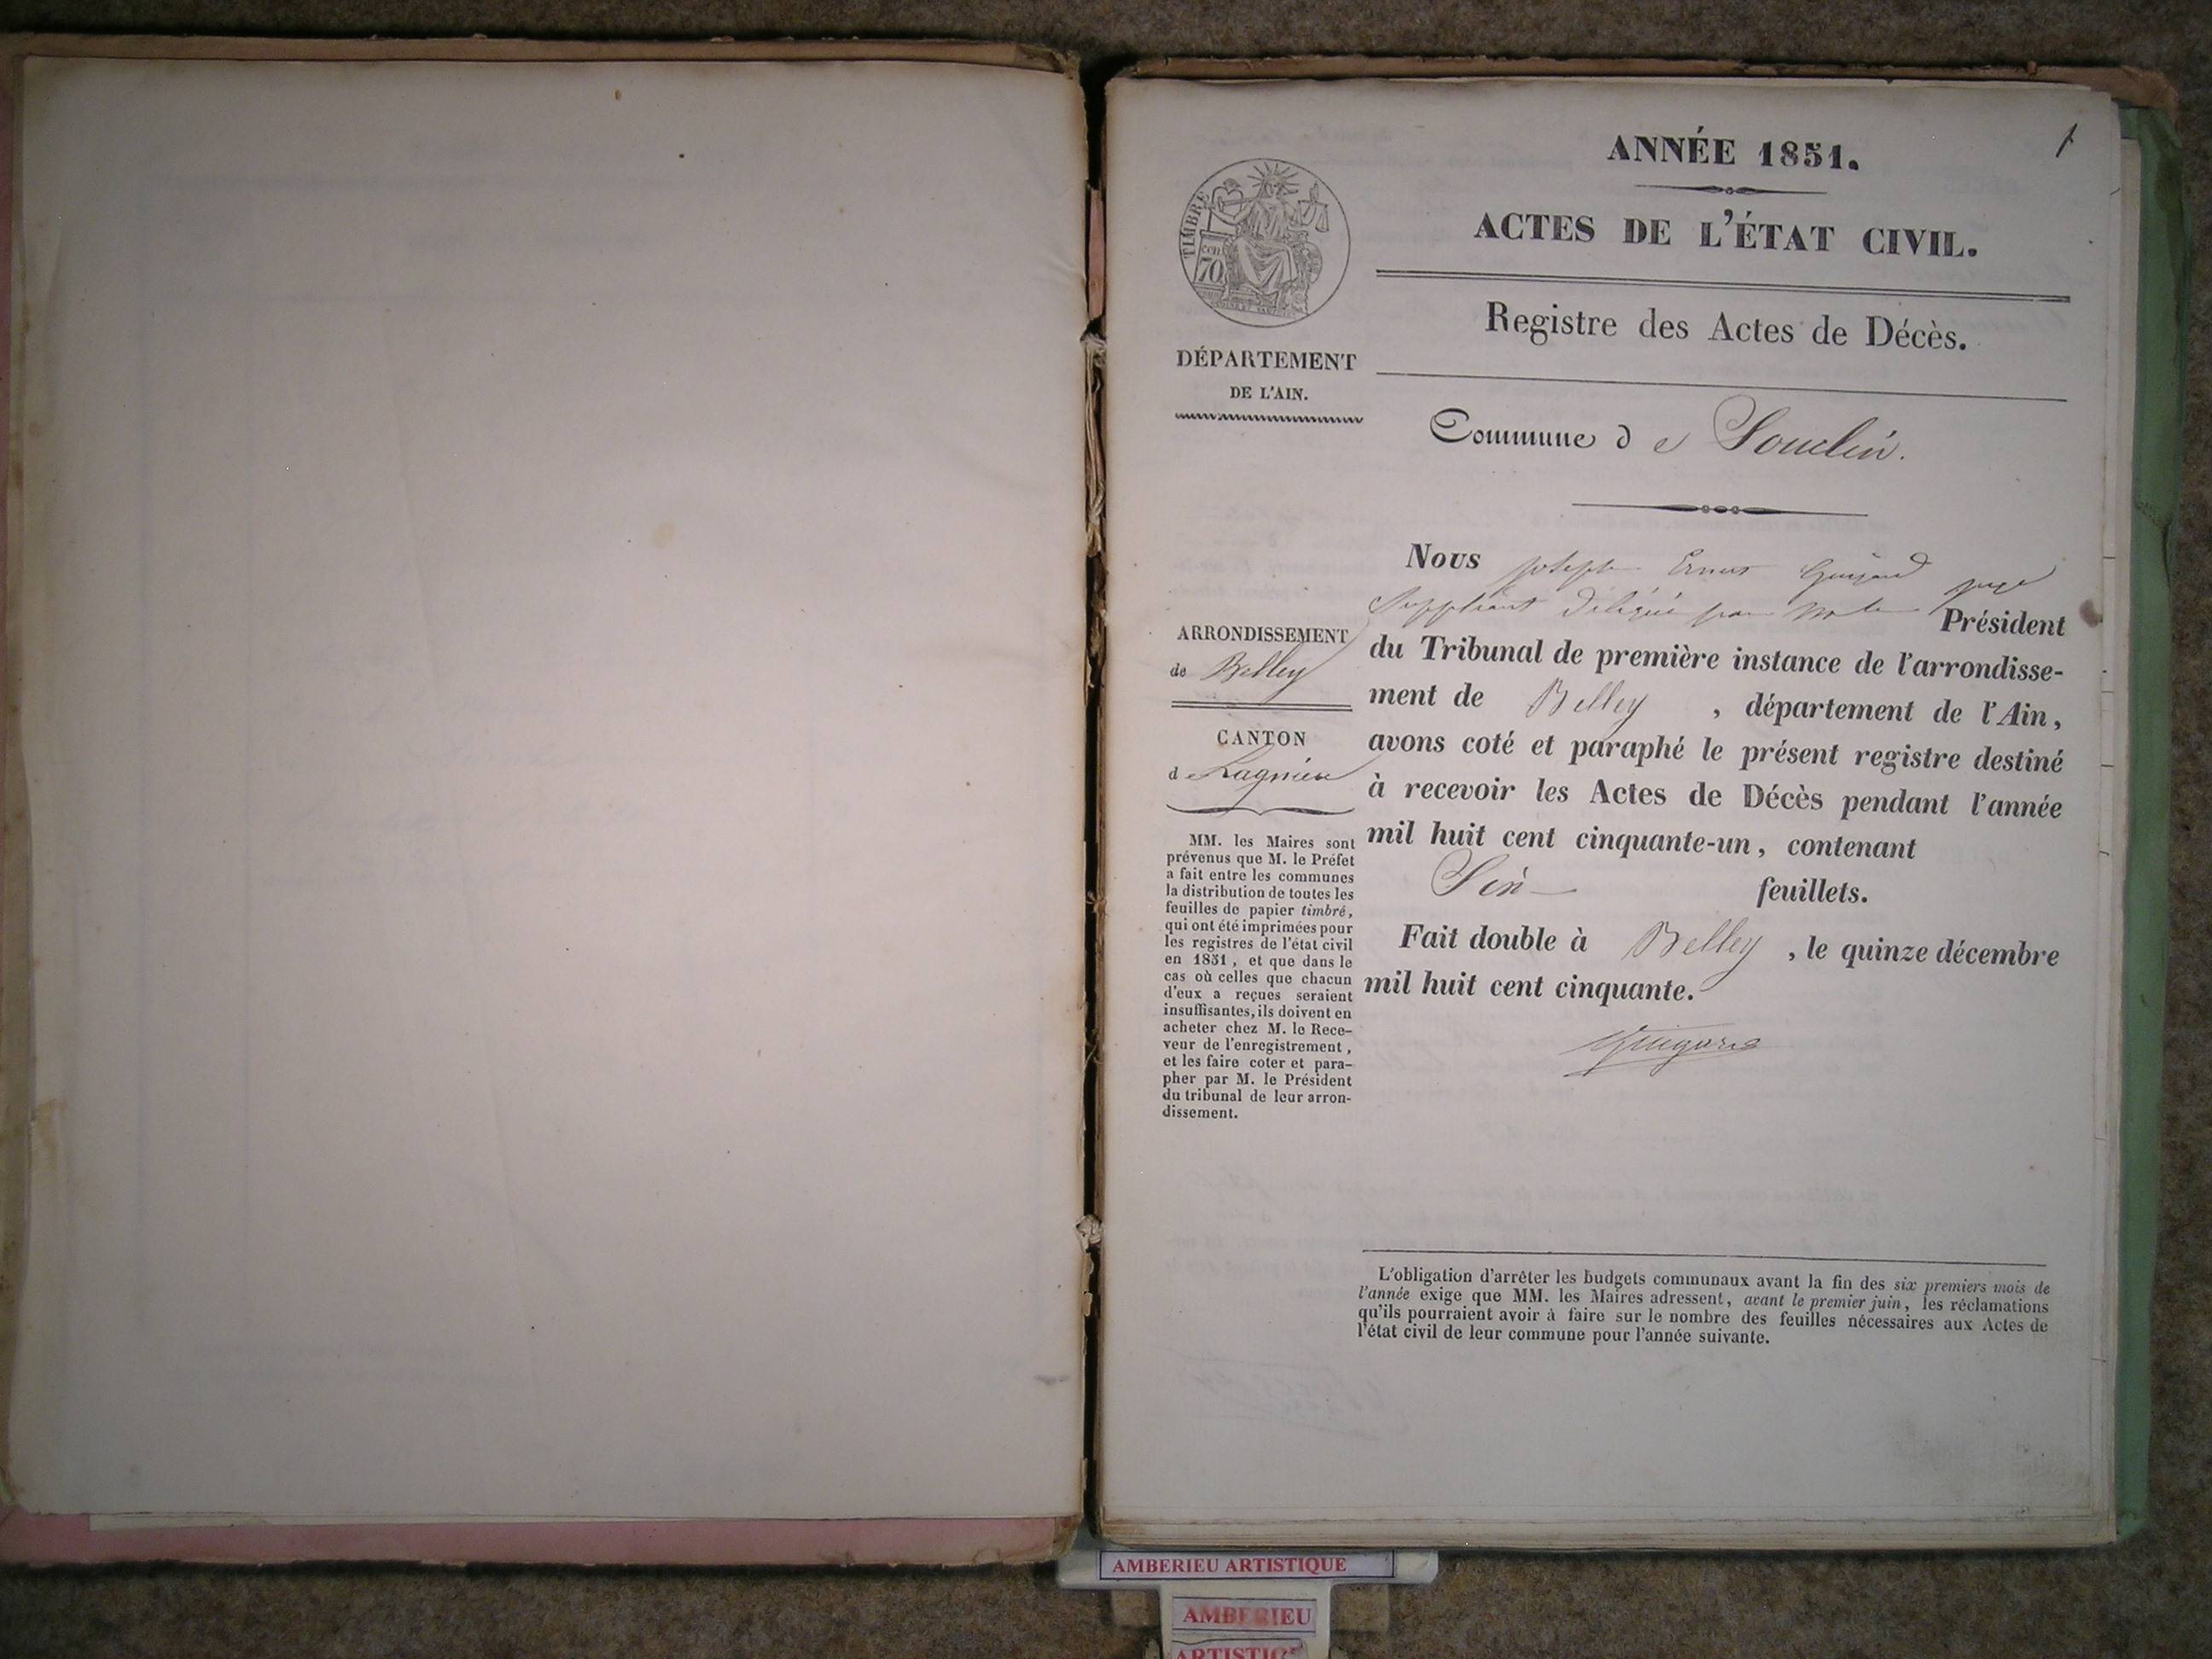 1
ANNÉE 1851.
ACTES DE L'ÉTAT CIVIL.
TIMBRE
cen
70
DÉPARTEMENT
DE L'AIN.
Registre des Actes de Décès.
Commune de Souclin.
ARRONDISSEMENT
de Belley
CANTON
de Lagnieu
MM. les Maires sont
prévenus que M. le Préfet
a fait entre les communes
la distribution de toutes les
feuilles de papier timbré,
qui ont été imprimées pour
les registres de l'état civil
en 1851, et que dans le
cas où celles que chacun
d'eux a reçues seraient
insuffisantes, ils doivent en
acheter chez M. le Rece-
veur de l'enregistrement,
et les faire coter et para-
pher par M. le Président
du tribunal de leur arron-
dissement.
Nous Joseph Ernest Guigard juge
Suppléant délégué par Mr le Président
du Tribunal de première instance de l'arrondisse-
ment de Belley, département de l'Ain,
avons coté et paraphé le présent registre destiné
à recevoir les Actes de Décès pendant l'année
mil huit cent cinquante-un, contenant
Six feuillets.
Fait double à Belley, le quinze décembre
mil huit cent cinquante.
Guigard
L'obligation d'arrêter les budgets communaux avant la fin des six premiers mois de
l'année exige que MM. les Maires adressent, avant le premier juin, les réclamations
qu'ils pourraient avoir à faire sur le nombre des feuilles nécessaires aux Actes de
l'état civil de leur commune pour l'année suivante.
AMBERIEU ARTISTIQUE
AMBERIEU